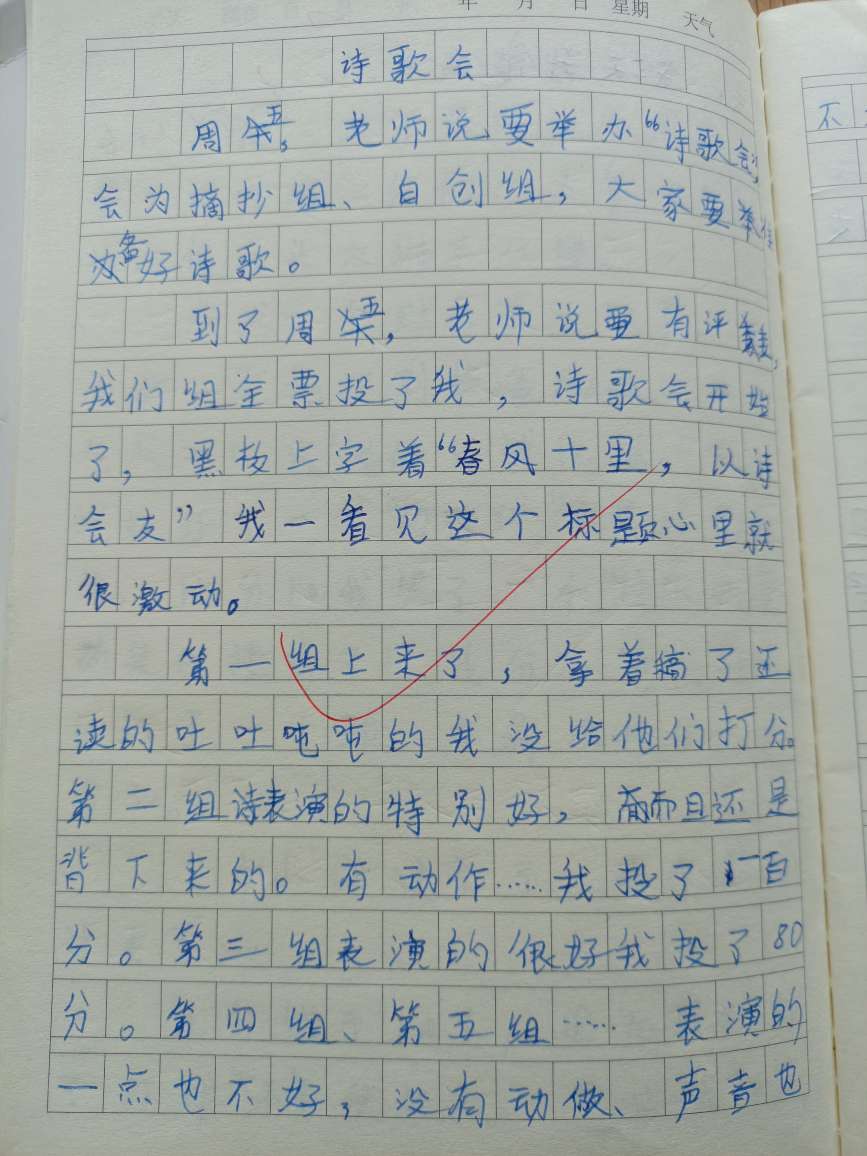 年 月 日 星期 天气
诗歌会
周五，老师说要举办“诗歌会”，
会为摘抄组、自创组，大家要准
备好诗歌。
到了周五，老师说要有评委，
我们组全票投了我，诗歌会开始
了，黑板上字着“春风十里，以诗
会友”我一看见这个标题心里就
很激动。
第一组上来了，拿着稿了还
读的吐吐吨吨的我没给他们打分。
第二组诗表演的特别好，而且还是
背下来的。有动作……我投了一百
分。第三组表演的很好我投了80
分。第四组、第五组……表演的
一点也不好，没有动做、声音也
不